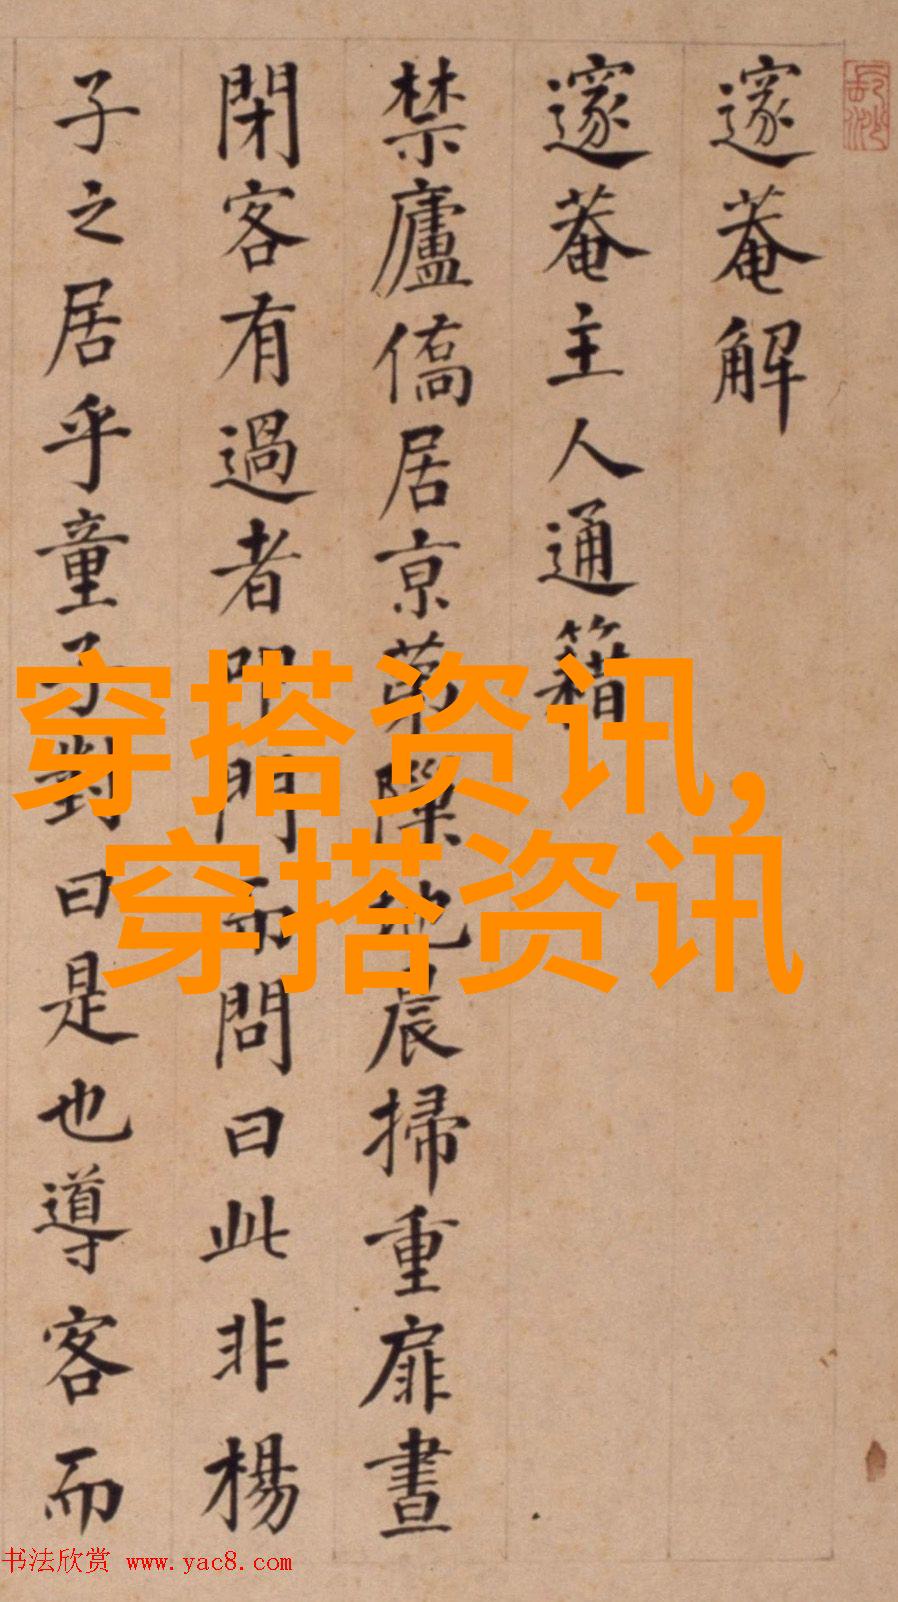 邃菴解
邃菴主人通籍
禁廬僑居亰苐隟地晨掃重扉晝
閉客有過者叩門而問曰此非楊
子之居乎童子對曰是也導客而
穿搭资讯,
穿搭资讯
书法欣赏 www.yac8.com